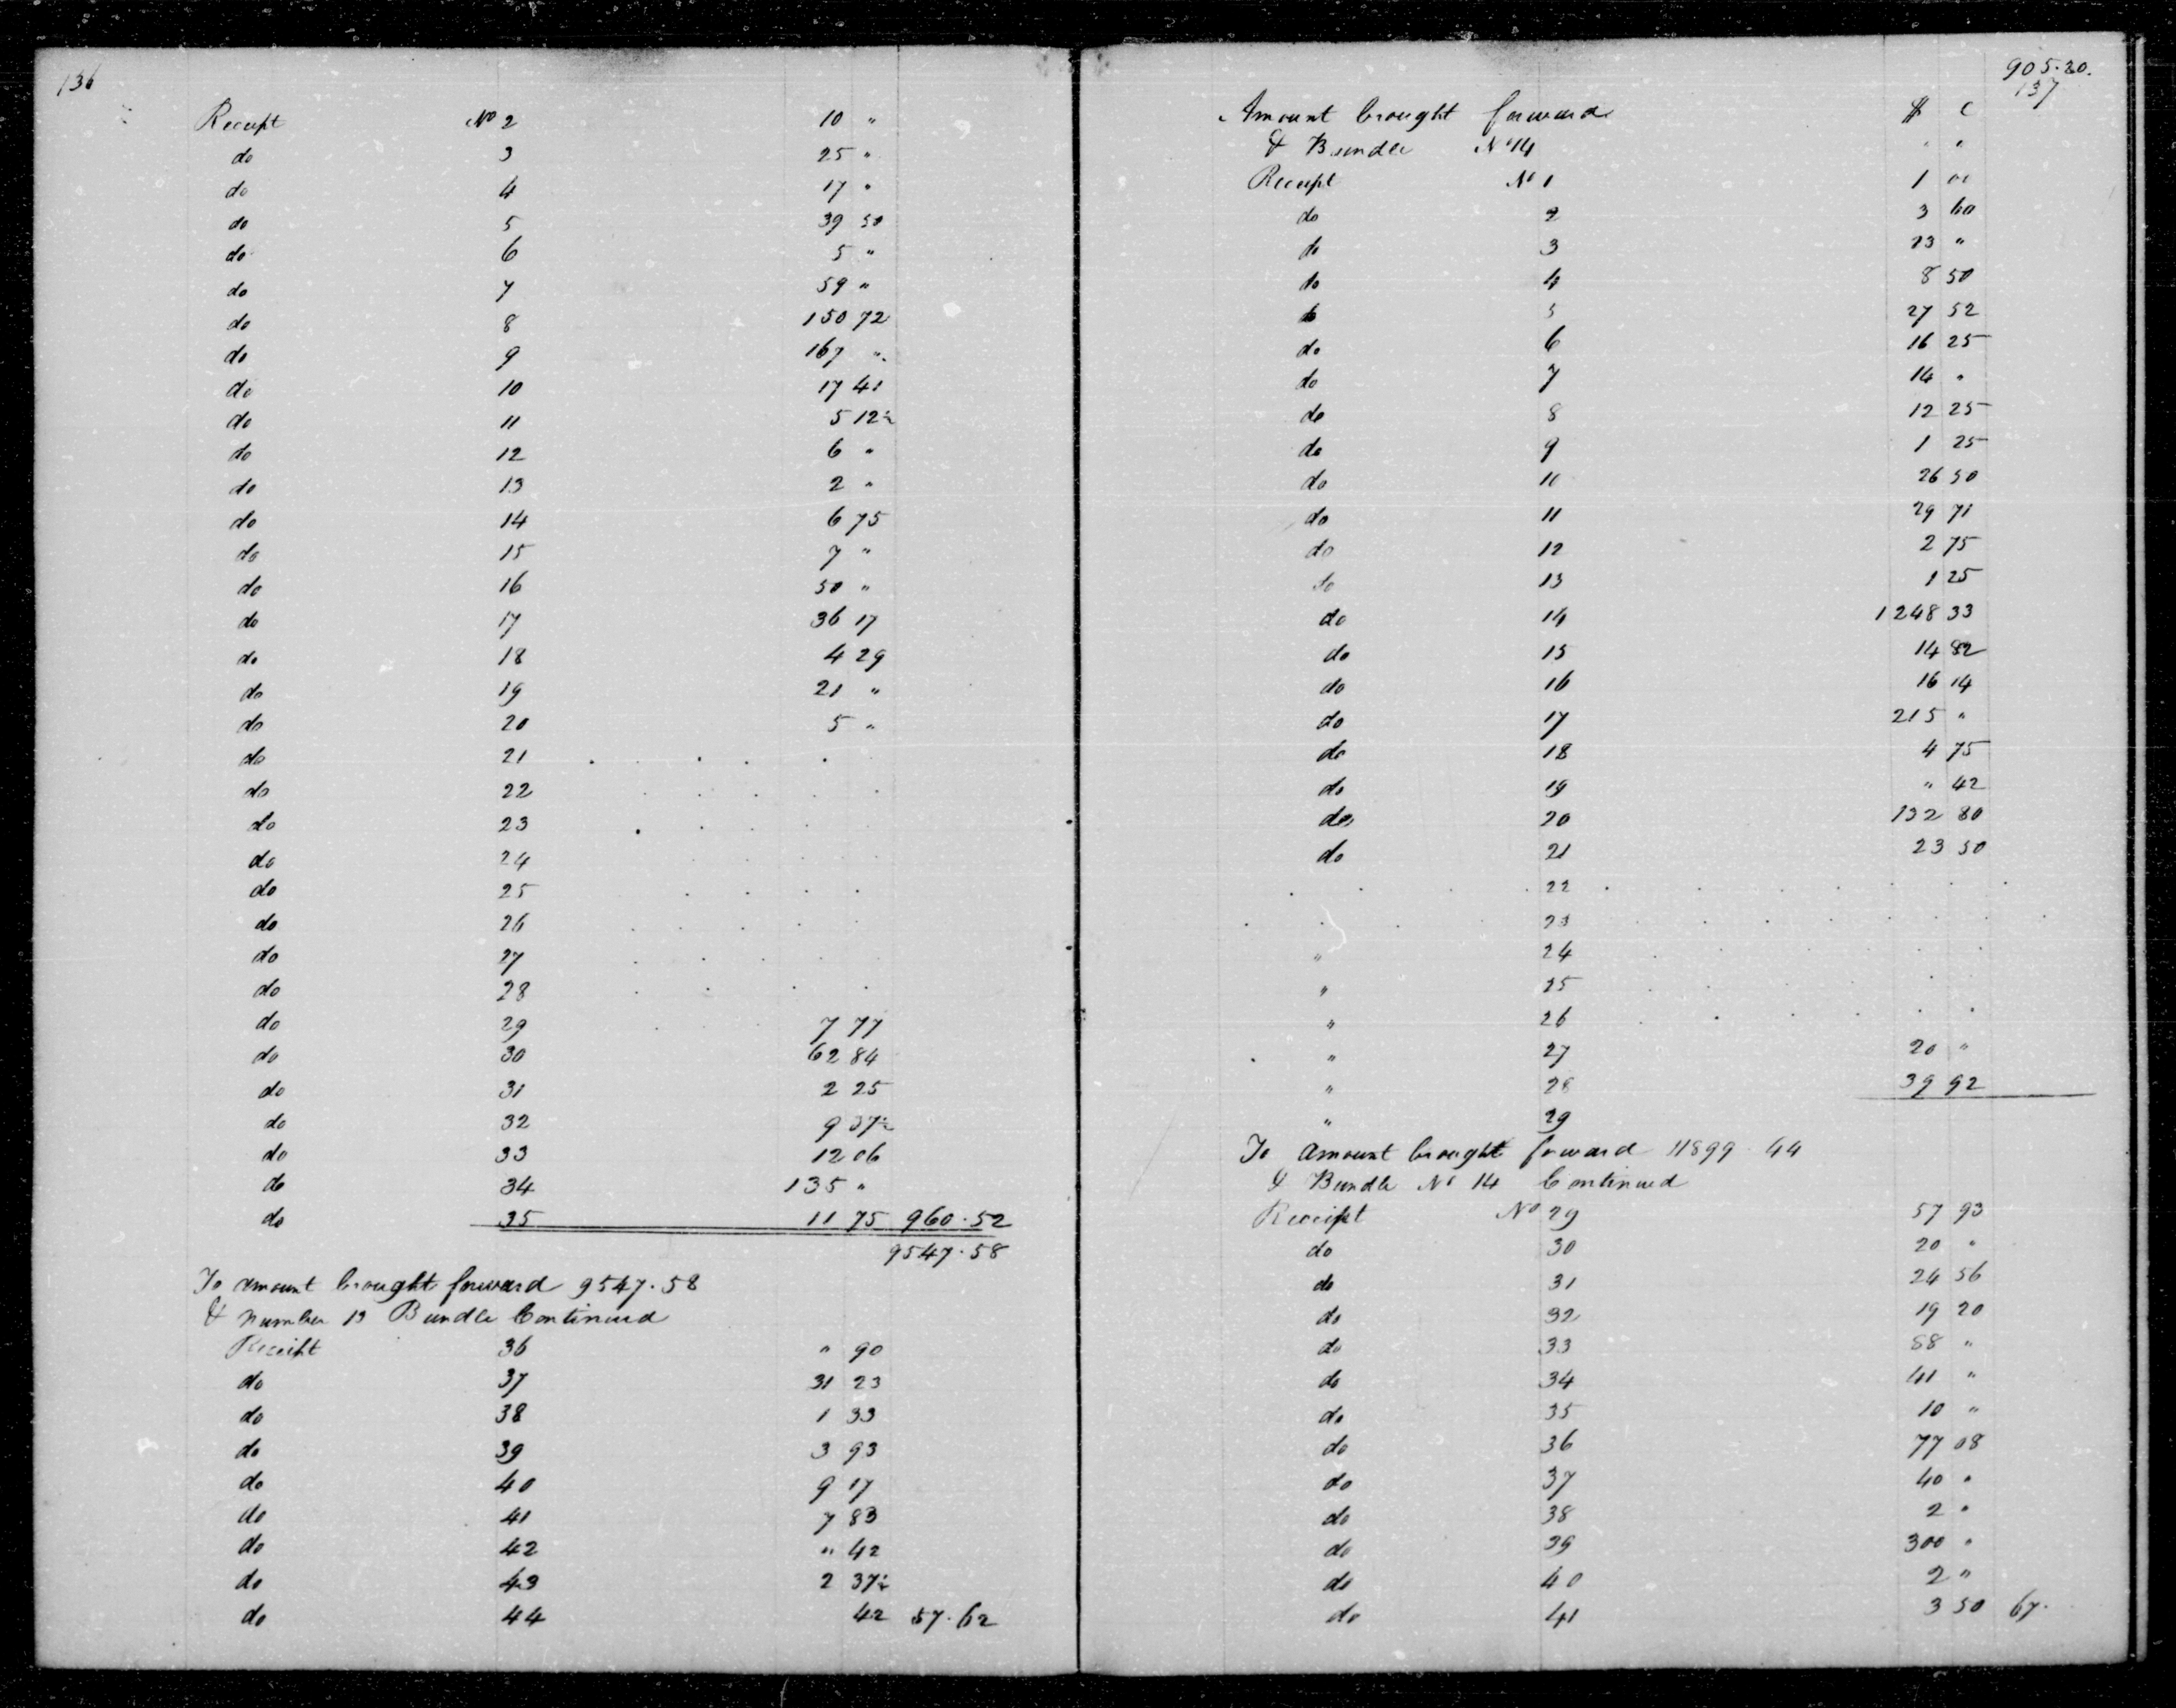 136
Receipt No 2 10 "
do 3 25 "
do 4 17 "
do 5 39 50
do 6 5 "
do 7 59 "
do 8 150 72
do 9 167 "
do 10 17 41
do 11 5 12½
do 12 6 "
do 13 2 "
do 14 6 75
do 15 7 "
do 16 50 "
do 17 36 17
do 18 4 29
do 19 21 "
do 20 5 "
do 21 . . . .
do 22 . . . . .
do 23 . . . .
do 24 . . . .
do 25 . . . .
do 26 . . . .
do 27 . . . . .
do 28 . . . .
do 29 7 77
do 30 62 84
do 31 2 25
do 32 9 37½
do 33 12 06
do 34 135 "
do 35 11 75 960.52
9547.58
To amount brought forward 9547.58
& number 13 Bundle Continued
Receipt 36 " 90
do 37 31 23
do 38 1 33
do 39 3 93
do 40 9 17
do 41 7 83
do 42 " 42
do 43 2 37½
do 44 42 57.62
905.20.
137
Amount brought forward $ c
& Bundle No 14 " "
Receipt No 1 1 00
do 2 3 60
do 3 23 "
do 4 8 50
do 5 27 52
do 6 16 25
do 7 14 "
do 8 12 25
do 9 1 25
do 10 26 50
do 11 29 71
do 12 2 75
do 13 1 25
do 14 1248 33
do 15 14 82
do 16 16 14
do 17 215 "
do 18 4 75
do 19 " 42
do 20 132 80
do 21 23 50
. . . 22 . . . . . . .
. . . 23 . . . . . . .
" 24 . . . .
" 25 . . . .
" 26 . . . . . .
" 27 20 "
" 28 39 92
" 29
To amount brought forward 11899.44
& Bundle No 14 Continued
Receipt No 29 57 93
do 30 20 "
do 31 24 56
do 32 19 20
do 33 58 "
do 34 41 "
do 35 10 "
do 36 77 08
do 37 40 "
do 38 2 "
do 39 300 "
do 40 2 "
do 41 3 50 67.